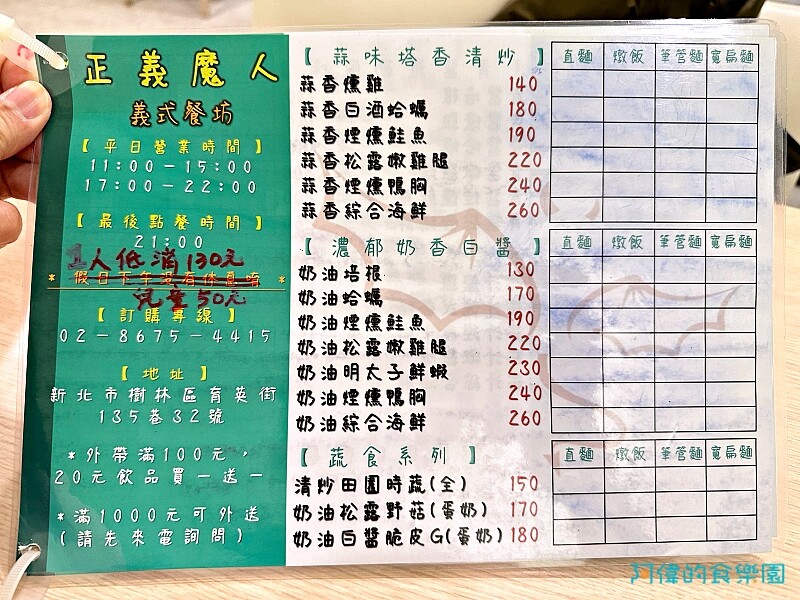 正義魔人
義式餐坊
【平日營業時間】
11:00－15:00
17:00－22:00
【最後點餐時間】
21:00
1人低消130元
* 假日下午沒有休息唷 *
兒童50元
【訂購專線】
02－8675－4415
【地址】
新北市樹林區育英街
135巷32號
*外帶滿100元，
20元飲品買一送一
*滿1000元可外送
(請先來電詢問)
【蒜味塔香清炒】 直麵 燉飯 筆管麵 寬扁麵
蒜香燻雞 140
蒜香白酒蛤蠣 180
蒜香煙燻鮭魚 190
蒜香松露嫩雞腿 220
蒜香煙燻鴨胸 240
蒜香綜合海鮮 260
【濃郁奶香白醬】 直麵 燉飯 筆管麵 寬扁麵
奶油培根 130
奶油蛤蠣 170
奶油煙燻鮭魚 190
奶油松露嫩雞腿 220
奶油明太子鮮蝦 230
奶油煙燻鴨胸 240
奶油綜合海鮮 260
【蔬食系列】 直麵 燉飯 筆管麵 寬扁麵
清炒田園時蔬(全) 150
奶油松露野菇(蛋奶) 170
奶油白醬脆皮G(蛋奶) 180
阿偉的食樂園